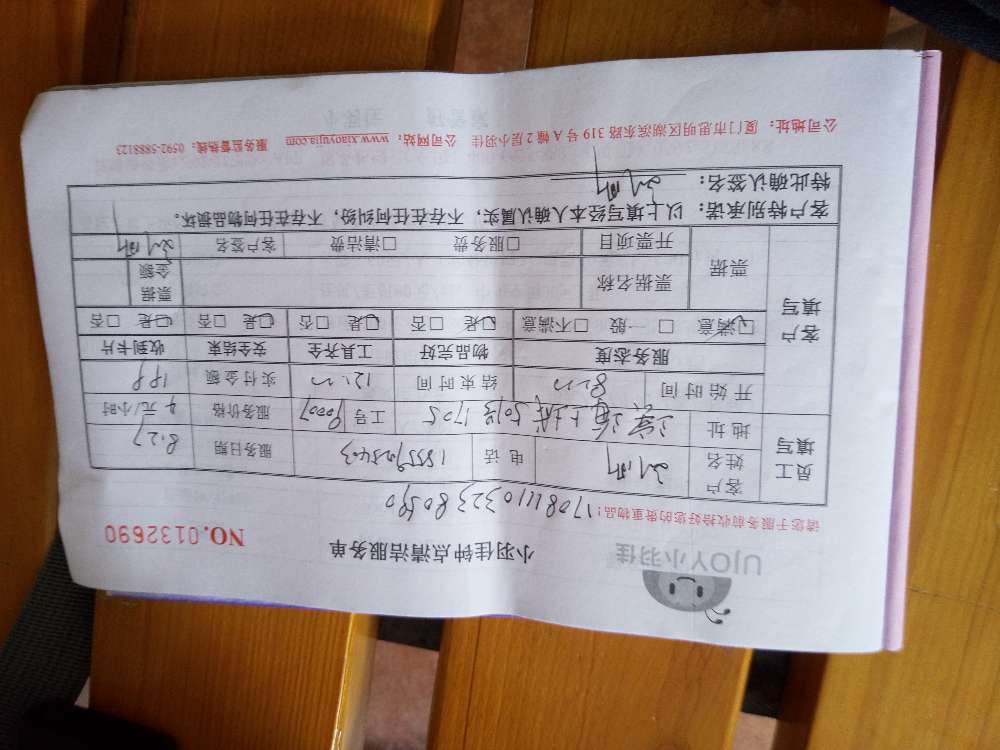 UJOY小羽佳
小羽佳钟点清洁服务单
NO.0132690
请您于服务前收拾好您的贵重物品！
员工填写
客户姓名
电话
服务日期 8.27
地址 5013 1705
工号 90007
服务价格 4 元/小时
开始时间 8:00
结束时间 12:00
实付金额 188
客户填写
服务态度 物品完好 工具齐全 安全结束 收到卡片
☑满意 □一般 □不满意 ☑是 □否 ☑是 □否 ☑是 □否 ☑是 □否
票据
票据名称
票据金额
开票项目 □服务费 □清洁费 客户签名
客户特别承诺：以上填写经本人确认属实，不存在任何纠纷，不存在任何物品损坏。
特此确认签名：
公司地址：厦门市思明区湖滨东路 319 号 A 幢 2 层小羽佳 公司网站：www.xiaoyujia.com 服务监督热线：0592-5888123